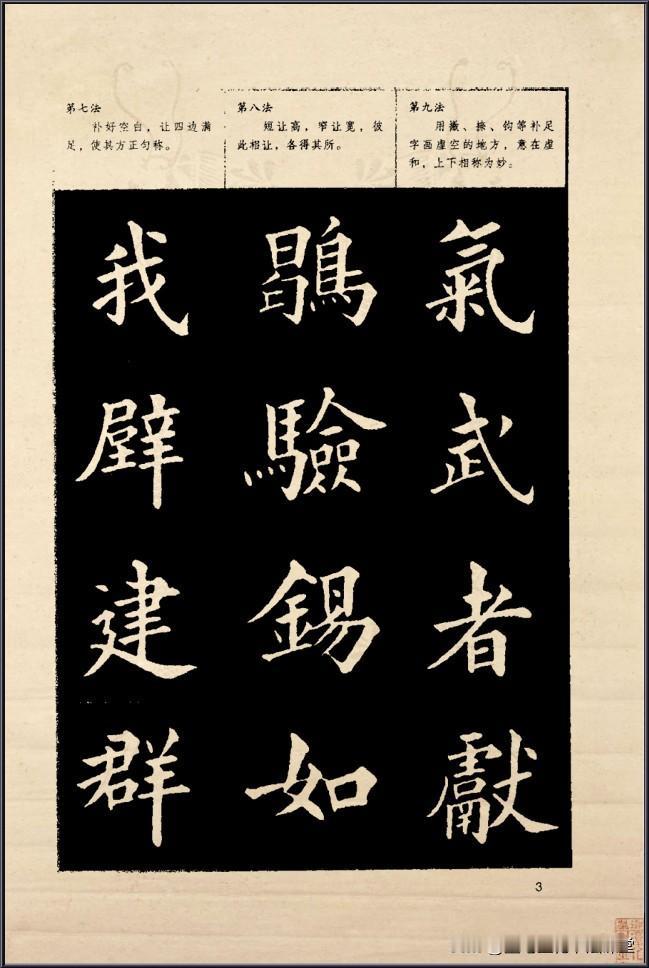 第七法
补好空白，让四边满
足，使其方正匀称。
我
辟
建
群
第八法
短让高，窄让宽，彼
此相让，各得其所。
鶡
驗
錫
如
第九法
用撇、捺、钩等补足
字画虚空的地方，意在虚
和，上下相称为妙。
氣
武
者
獻
3